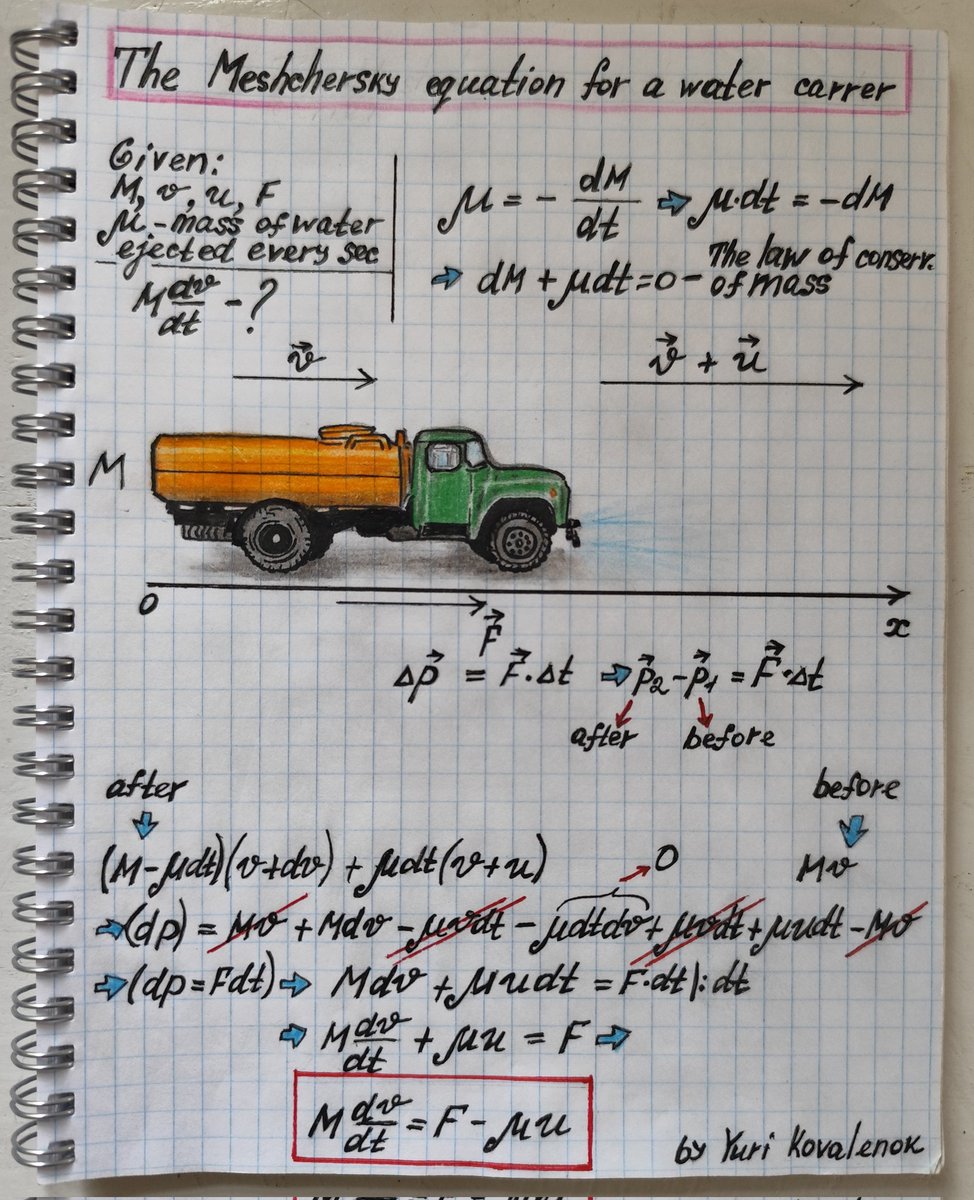 The Meshchersky equation for a water carrer
Given:
M, v, u, F
μ - mass of water
ejected every sec
M dv/dt - ?
μ = - dM/dt ⇒ μ·dt = -dM
⇒ dM + μdt = 0 - The law of conserv. of mass
v⃗
v⃗ + u⃗
M
0
x
F⃗
Δp⃗ = F⃗·Δt ⇒ p⃗₂ - p⃗₁ = F⃗·Δt
after before
after before
(M-μdt)(v+dv) + μdt(v+u) Mv
⇒ (dp) = Mv + Mdv - μvdt - μdtdv + μvdt + μudt - Mv
0
⇒ (dp = Fdt) ⇒ Mdv + μudt = F·dt |: dt
⇒ M dv/dt + μu = F ⇒
M dv/dt = F - μu
by Yuri Kovalenok